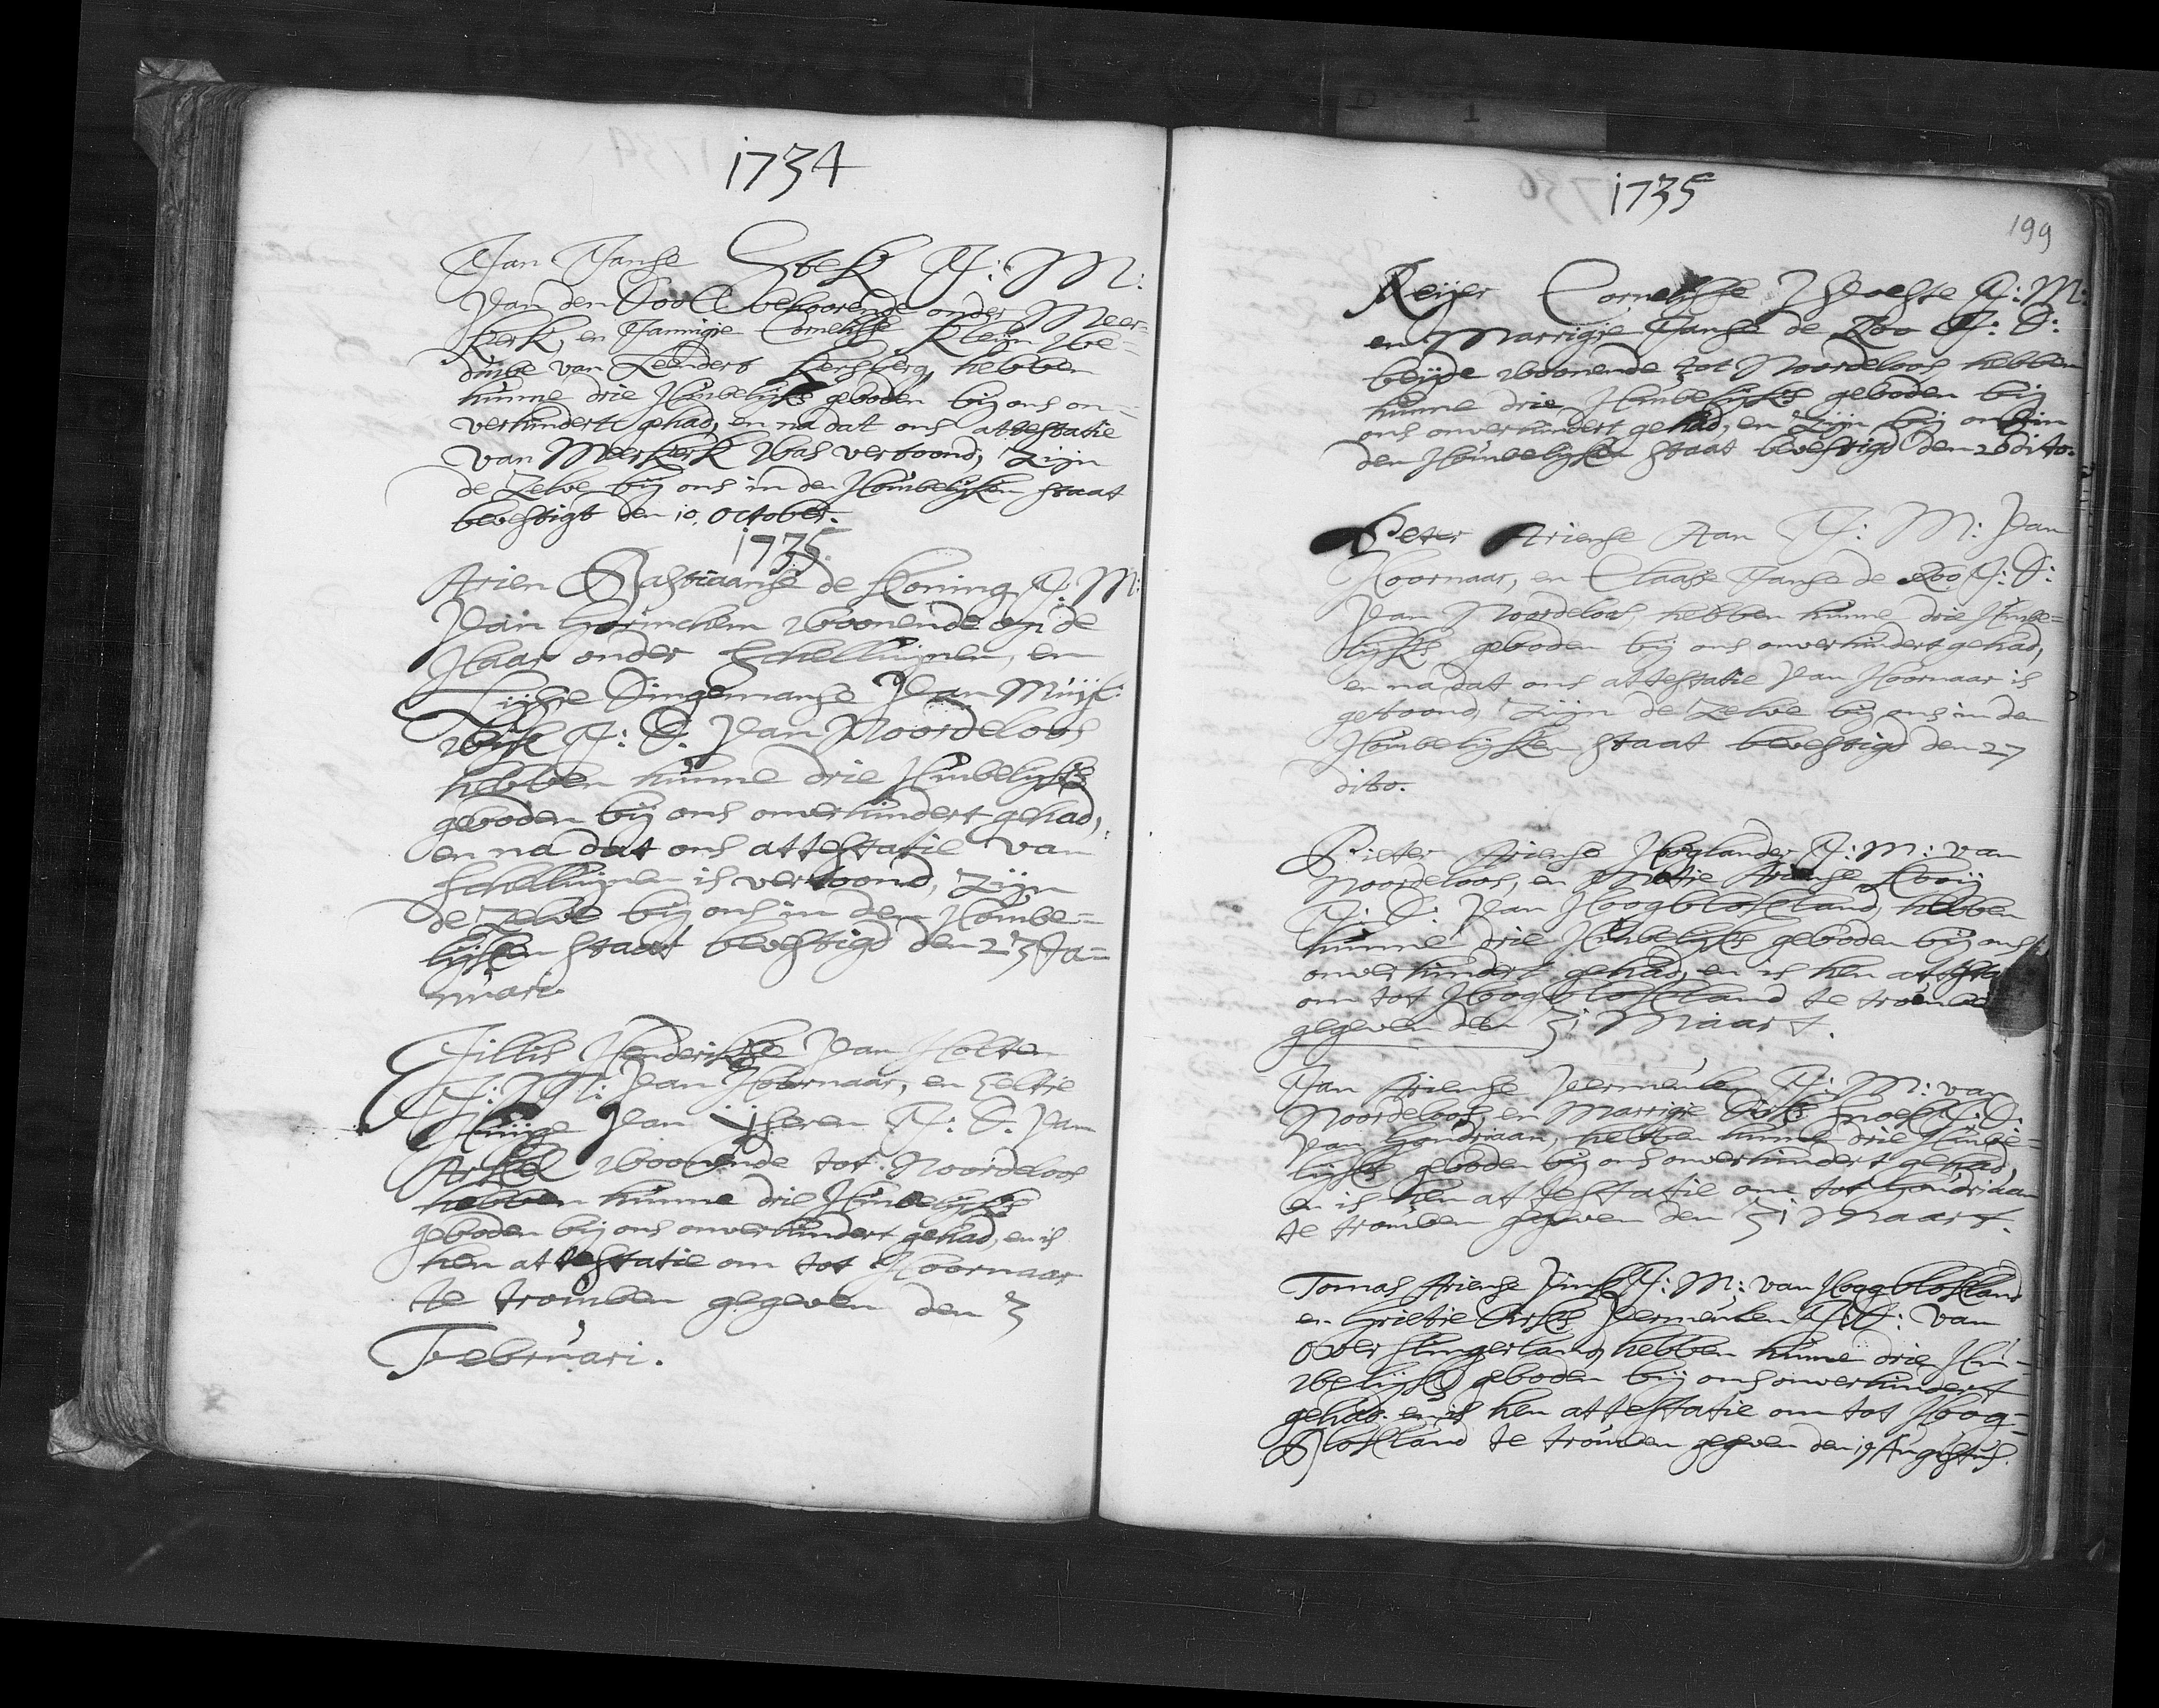 1734
Jan Janse Stek J: M:
Van den Dool behoorende onder Meer=
kerk, en Jannigje Cornelisse Kleijn We=
duwe van Leendert Kersberg, hebben
hunne drie Huwelijks geboden bij ons on=
verhindert gehad, en na dat ons attestatie
van Meerkerk was vertoond, Zijn
de Zelve bij ons in den Houwelijken staat
bevestigt den 10. October.
1735.
Arien Bastiaanse de Koning J: M:
Van Gorinchem woonende op de
Haar onder Schelluijnen, en
Dingemanse Van Muijl
wijk J: D: Van Noordeloos
hebben hunne drie Huwelijks
geboden bij ons onverhindert gehad,
en na dat ons attestatie van
Schelluijnen is vertoond, Zijn
de Zelve bij ons in den Houwe=
lijken staat bevestigd den 23 Ja=
nuari.
Jillis Henderikse Van Holten
J: M: Van Hoornaar, en Eeltje
Huijge Van IJseren J: D: Van
Arkel woonende tot Noordeloos
hebben hunne drie Huwelijks
geboden bij ons onverhindert gehad, en is
hen attestatie om tot Hoornaar
te trouwen gegeven den 3
Februari.
1735
199
Reijer Cornelisse J: M:
en Marrigje Janse de Zoo J: D:
beijde woonende tot Noordeloos hebben
hunne drie Huwelijks geboden bij
ons onverhindert gehad, en Zijn bij ons in
den Houwelijken staat bevestigd den 26 dito.
Peter Ariense Aan J: M: Van
Hoornaar, en Claasje Janse de Zoo J: D:
Van Noordeloos, hebben hunne drie Huwe=
lijks geboden bij ons onverhindert gehad,
en na dat ons attestatie Van Hoornaar is
getoond, Zijn de Zelve bij ons in den
Houwelijken staat bevestigd den 27
dito.
Pieter Ariense Hoglander J: M: van
Noordeloos, en Ariense Kooij
J: D: Van Hoogblokland, hebben
hunne drie Huwelijks geboden bij ons
onverhindert gehad, en is hen attesta
om tot Hoogblokland te trouwen
gegeven den 31 Maart.
Jan Ariense Vermeulen J: M: van
Noordeloos, en Marrigje Dirks Snoek J: D:
Van Goudriaan, hebben hunne drie Huwe=
lijks geboden bij ons onverhindert gehad,
en is hen attestatie om tot Goudriaan
te trouwen gegeven den 31 Maart.
Tomas Ariense Vink J: M: van Hoogblokland
en Grietje Dirks Vermeulen J: D: van
Over slingerland, hebben hunne drie Hu=
welijks geboden bij ons onverhindert
gehad. en is hen attestatie om tot Hoog=
Blokland te trouwen gegeven den 19 Augustus.